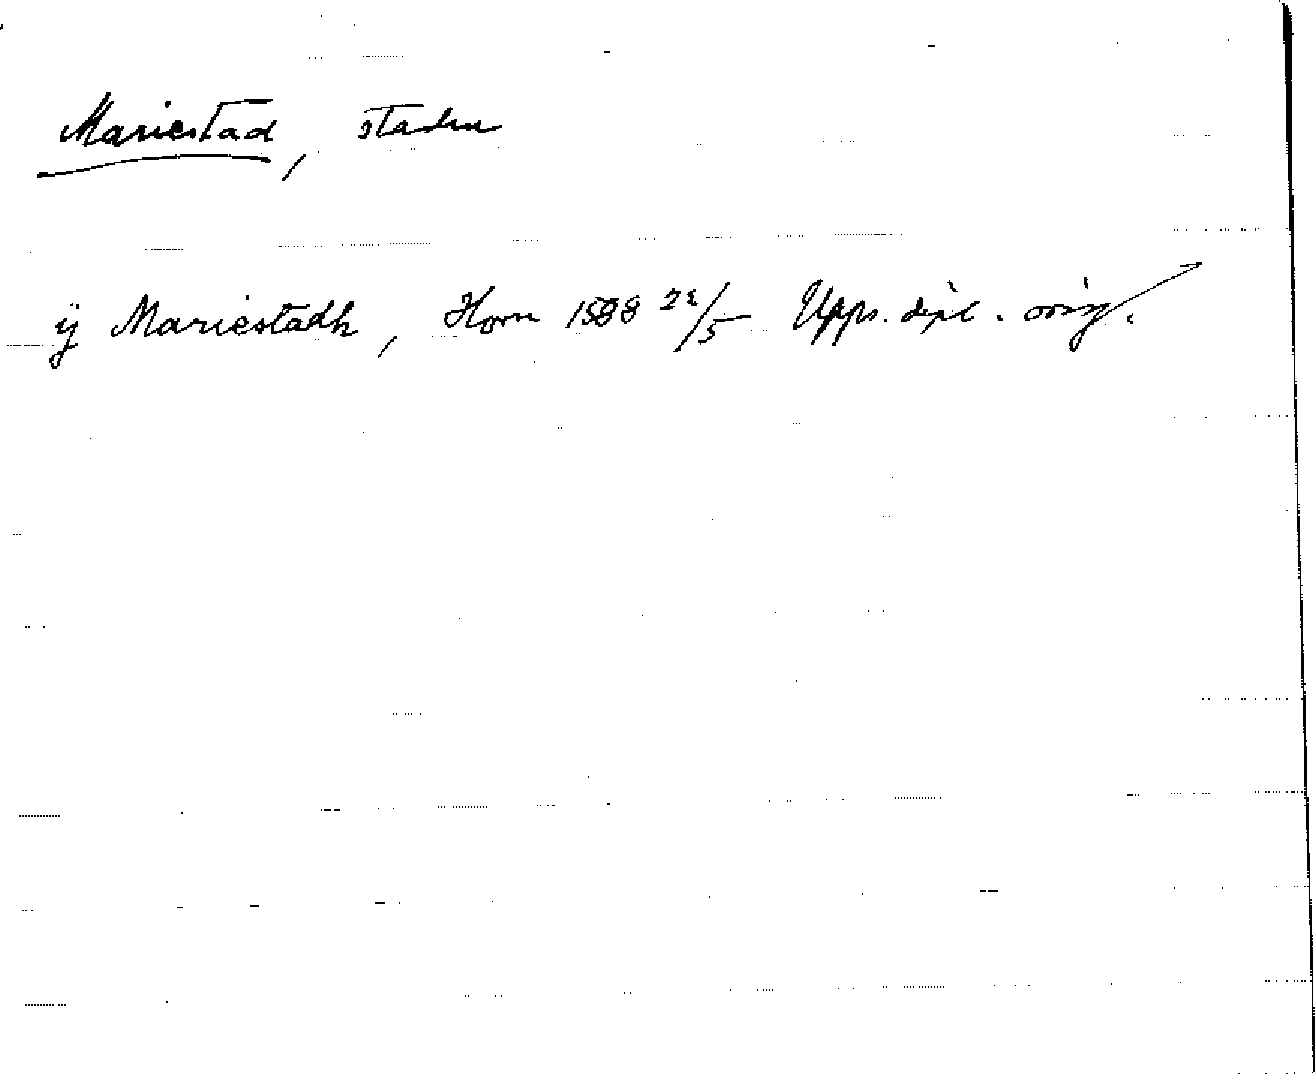 Mariestad, staden
ÿ Mariestadh, Horn 1588 22/5 Upps. dipl. orig.